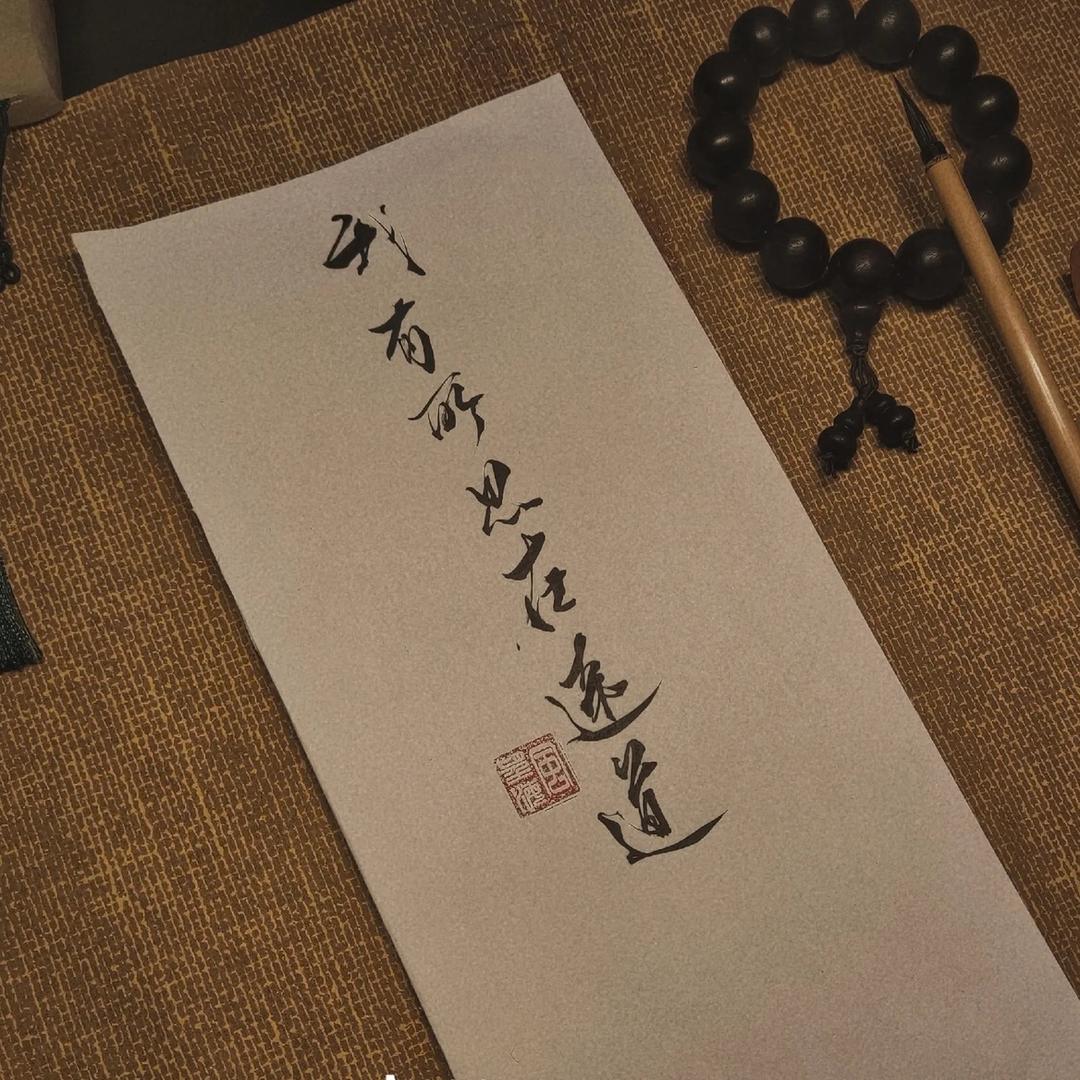 我有所思在远道